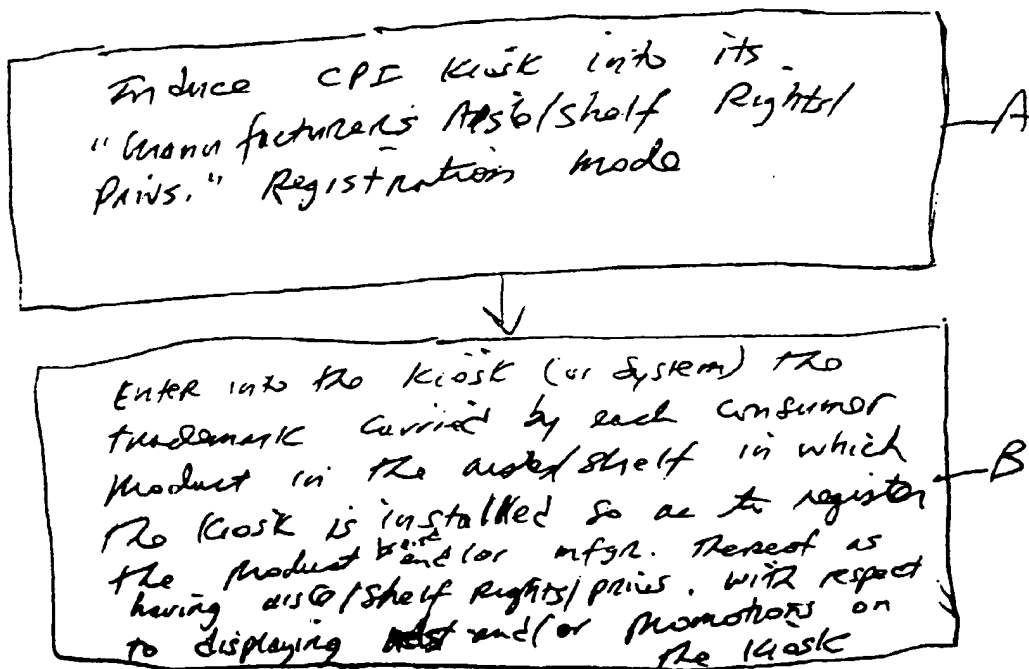 Induce CPI Kiosk into its
"Manufacturer's Aisle/Shelf Rights/
Privs." Registration mode
A
Enter into the Kiosk (or System) the
trademark carried by each consumer
product in the aisle/shelf in which
the Kiosk is installed so as to register
the product brand and/or mfgr. thereof as
having aisle/shelf rights/privs. with respect
to displaying and/or promotions on
the Kiosk
B